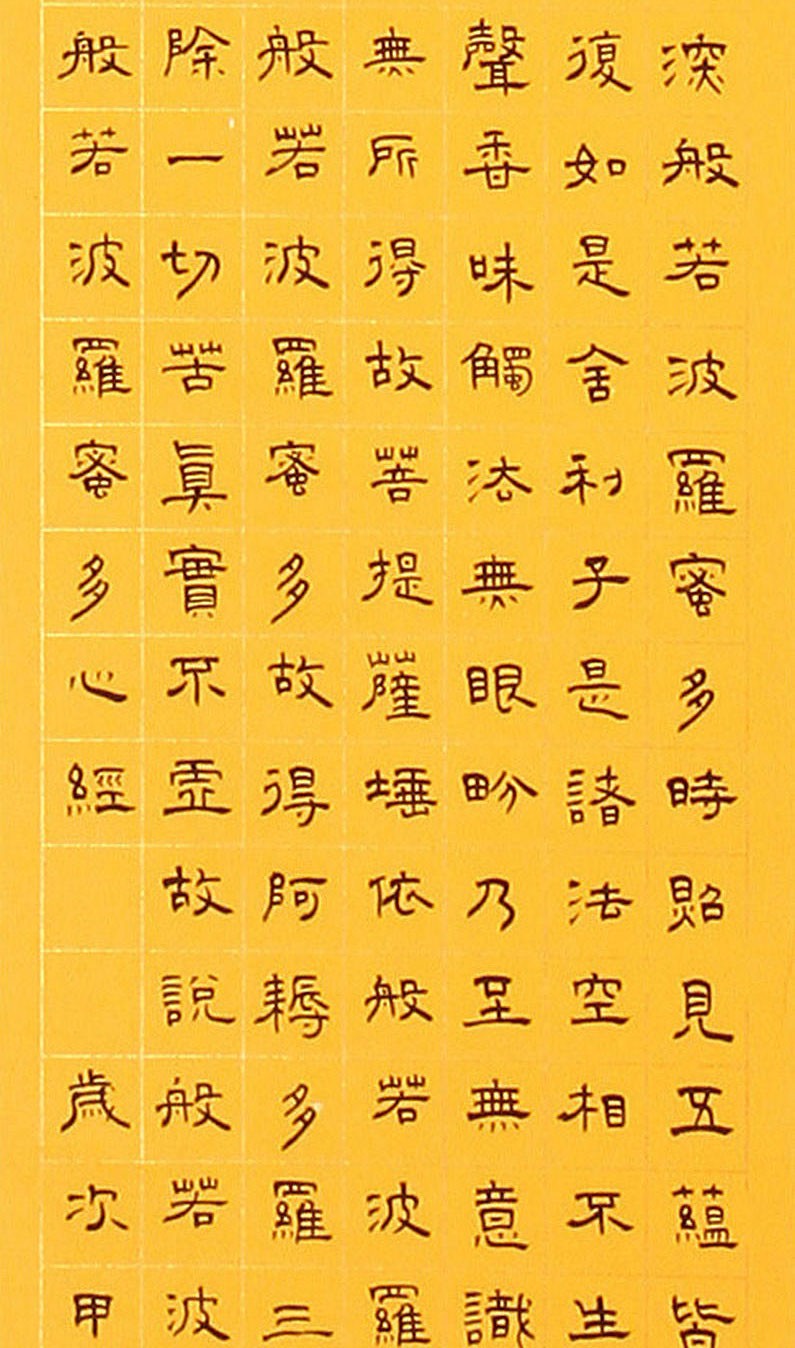 深般若波羅蜜多時照見五蘊皆
復如是舍利子是諸法空相不生
聲香味觸法無眼畍乃至無意識
無所得故菩提薩埵依般若波羅
般若波羅蜜多故得阿耨多羅三
除一切苦眞實不虛故說般若波
般若波羅蜜多心經 歲次甲